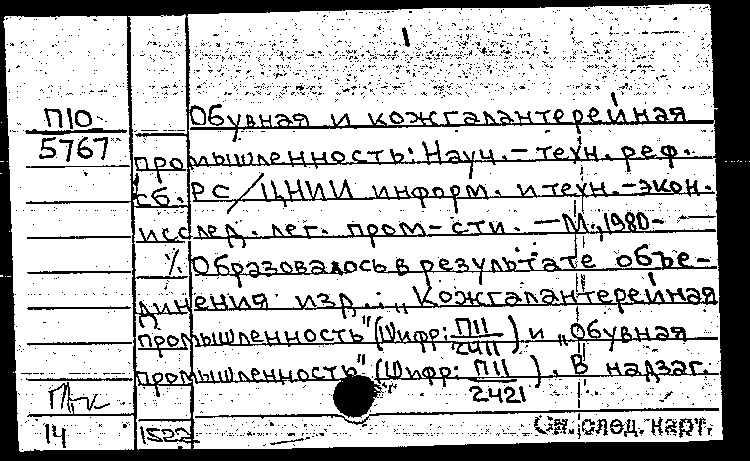 П10
5767
Обувная и кожгалантерейная
промышленность: Науч.-техн. реф.
сб. РС/ЦНИИ информ. и техн.-экон.
исслед. лег. пром-сти. — М., 1980-
⁒ Образовалось в результате объе-
динения изд.: „Кожгалантерейная
промышленность" (Шифр: П11/2411) и „Обувная
промышленность" (Шифр: П11/2421). В надзаг.
14
1522
См. след. карт.